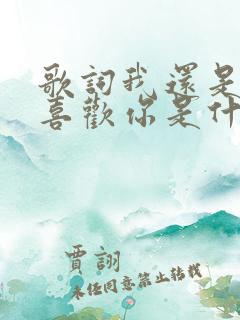 歌詞我還是
喜歡你是什
賈詡
未經同意禁止轉載